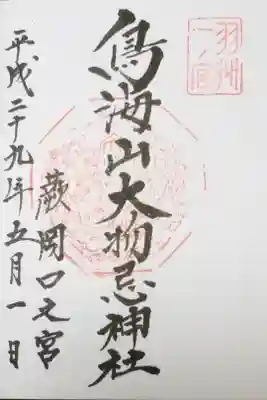 羽州一ノ宮
鳥海山大物忌神社
蕨岡口之宮
平成二十九年五月一日